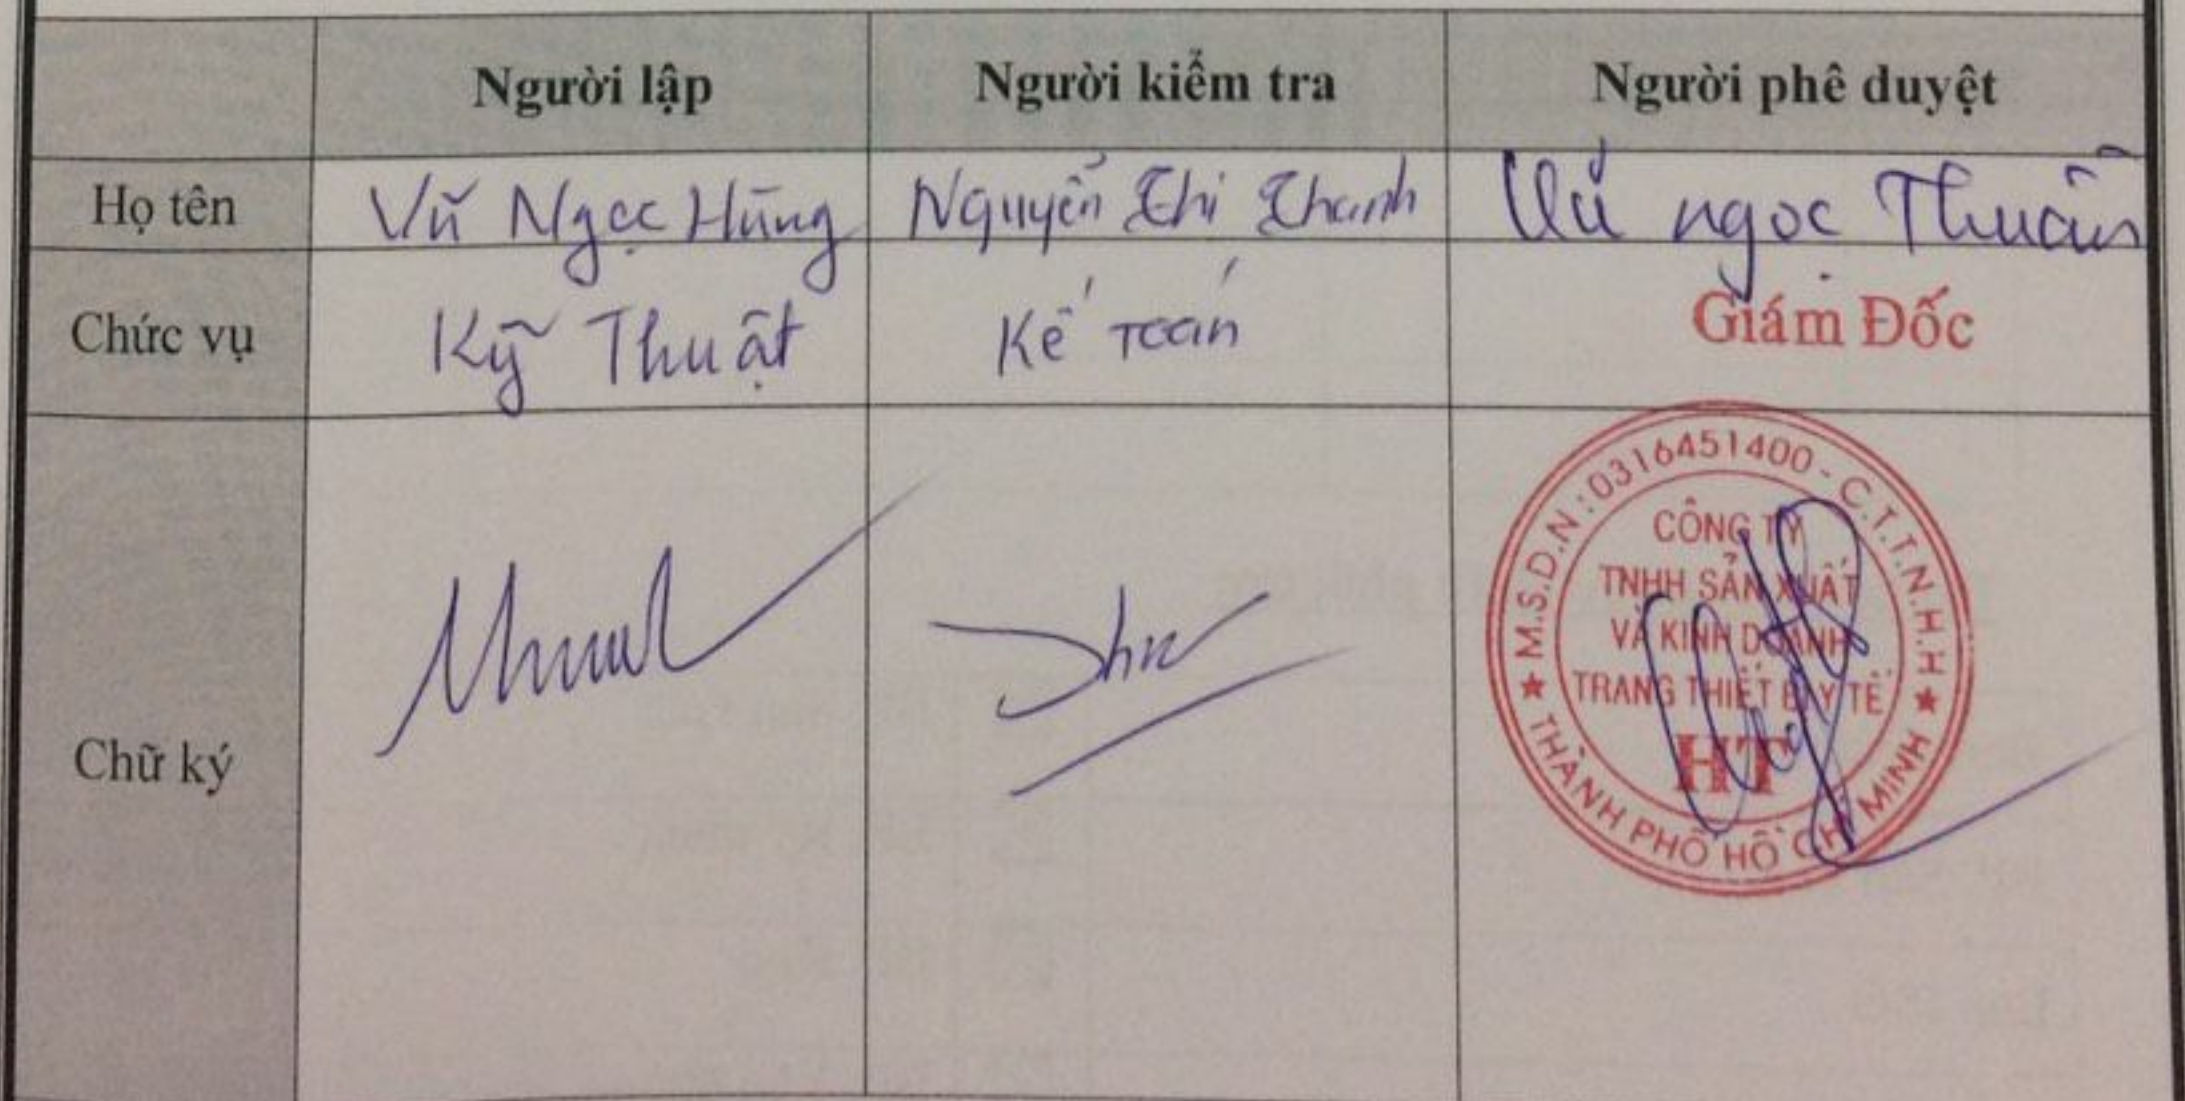 Người lập Người kiểm tra Người phê duyệt
Họ tên Vũ Ngọc Hùng Nguyễn Thi Thanh Vũ ngọc Thuần
Chức vụ Kỹ Thuật Kế Toán Giám Đốc
Chữ ký
M.S.D.N: 0316451400 - C.T.T.N.H.H
CÔNG TY
TNHH SẢN XUẤT
VÀ KINH DOANH
TRANG THIẾT BỊ Y TẾ
HT
THÀNH PHỐ HỒ CHÍ MINH